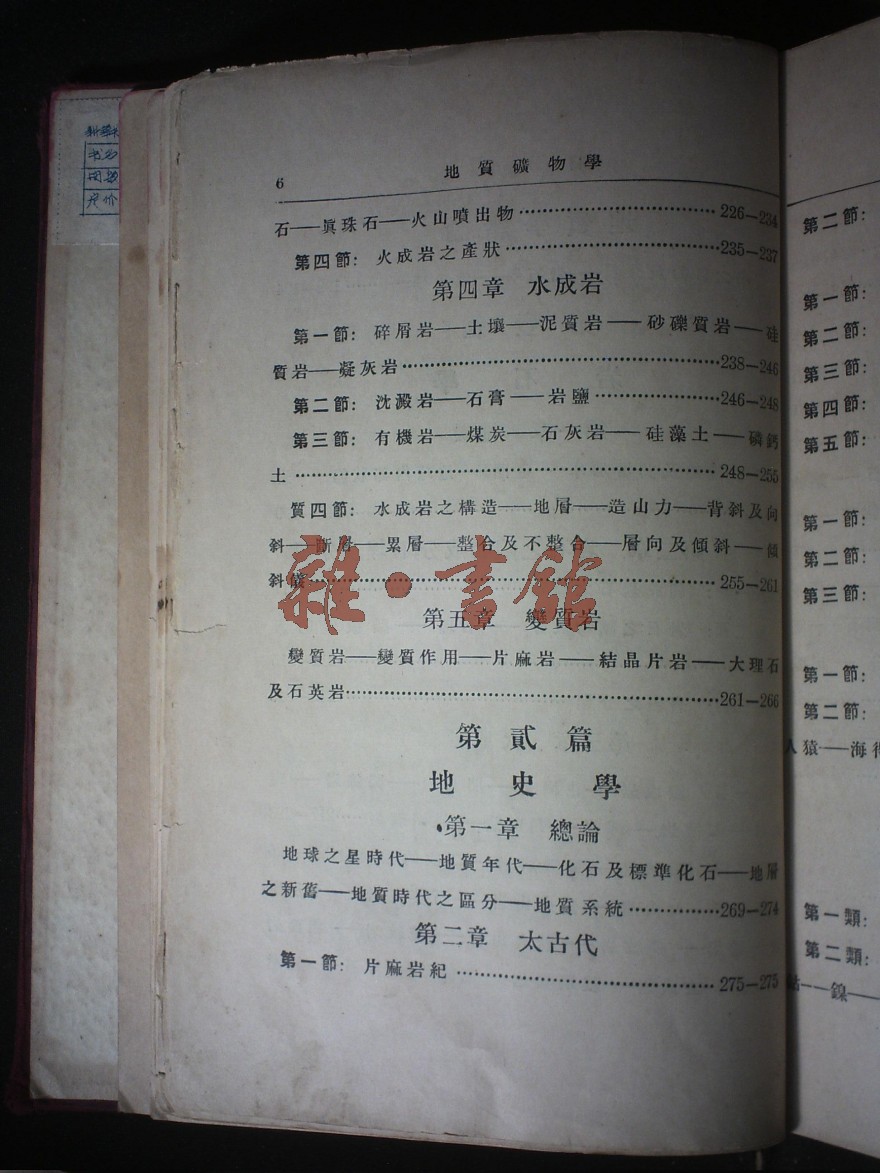 6 地質礦物學
石——眞珠石——火山噴出物 226—234
第四節：火成岩之產狀 235—237
第四章 水成岩
第一節：碎屑岩——土壤——泥質岩——砂礫質岩——硅
質岩——凝灰岩 238—246
第二節：沈澱岩——石膏——岩鹽 246—248
第三節：有機岩——煤炭——石灰岩——硅藻土——磷鈣
土 248—255
質四節：水成岩之構造——地層——造山力——背斜及向
斜——斷層——累層——整合及不整合——層向及傾斜——傾
斜儀 255—261
雜·書館
第五章 變質岩
變質岩——變質作用——片麻岩——結晶片岩——大理石
及石英岩 261—266
第貳篇
地史學
第一章 總論
地球之星時代——地質年代——化石及標準化石——地層
之新舊——地質時代之區分——地質系統 269—274
第二章 太古代
第一節：片麻岩紀 275—275
第二節：
第一節：
第二節：
第三節：
第四節：
第五節：
第一節：
第二節：
第三節：
第一節：
第二節：
人猿——海
第一類：
第二類：
鈷——鎳——
书名
定价